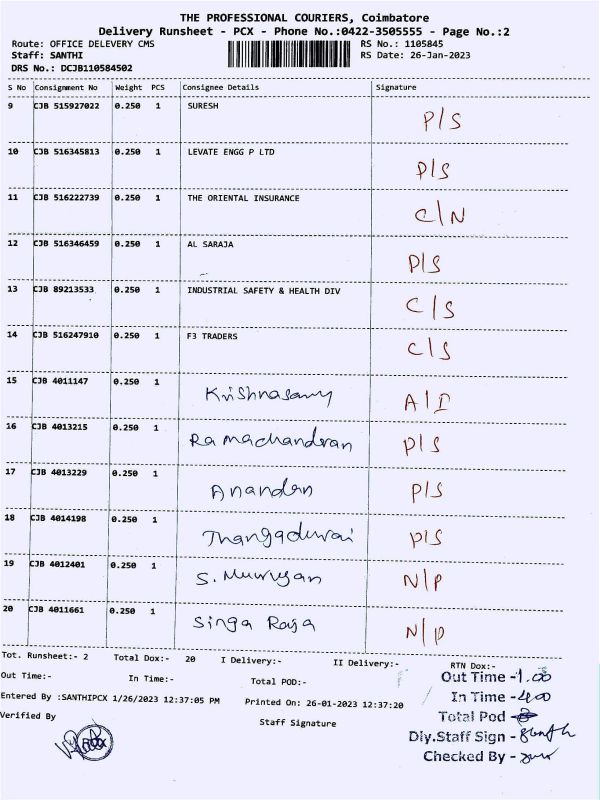 THE PROFESSIONAL COURIERS, Coimbatore
Delivery Runsheet - PCX - Phone No.:0422-3505555 - Page No.:2
Route: OFFICE DELEVERY CMS RS No.: 1105845
Staff: SANTHI RS Date: 26-Jan-2023
DRS No.: DCJB110584502
S No Consignment No Weight PCS Consignee Details Signature
9 CJB 515927022 0.250 1 SURESH P/S
10 CJB 516345813 0.250 1 LEVATE ENGG P LTD P/S
11 CJB 516222739 0.250 1 THE ORIENTAL INSURANCE C/N
12 CJB 516346459 0.250 1 AL SARAJA P/S
13 CJB 89213533 0.250 1 INDUSTRIAL SAFETY & HEALTH DIV C/S
14 CJB 516247910 0.250 1 F3 TRADERS C/S
15 CJB 4011147 0.250 1 Krishnasamy A/I
16 CJB 4013215 0.250 1 Ramachandran P/S
17 CJB 4013229 0.250 1 Anandan P/S
18 CJB 4014198 0.250 1 Thangadurai P/S
19 CJB 4012401 0.250 1 S. Murugan N/P
20 CJB 4011661 0.250 1 Singa Raja N/P
Tot. Runsheet:- 2 Total Dox:- 20 I Delivery:- II Delivery:- RTN Dox:-
Out Time:- In Time:- Total POD:- Out Time - 1.00
In Time - 4.00
Entered By :SANTHIPCX 1/26/2023 12:37:05 PM Printed On: 26-01-2023 12:37:20
Total Pod -
Verified By Staff Signature
Dly.Staff Sign -
Checked By -